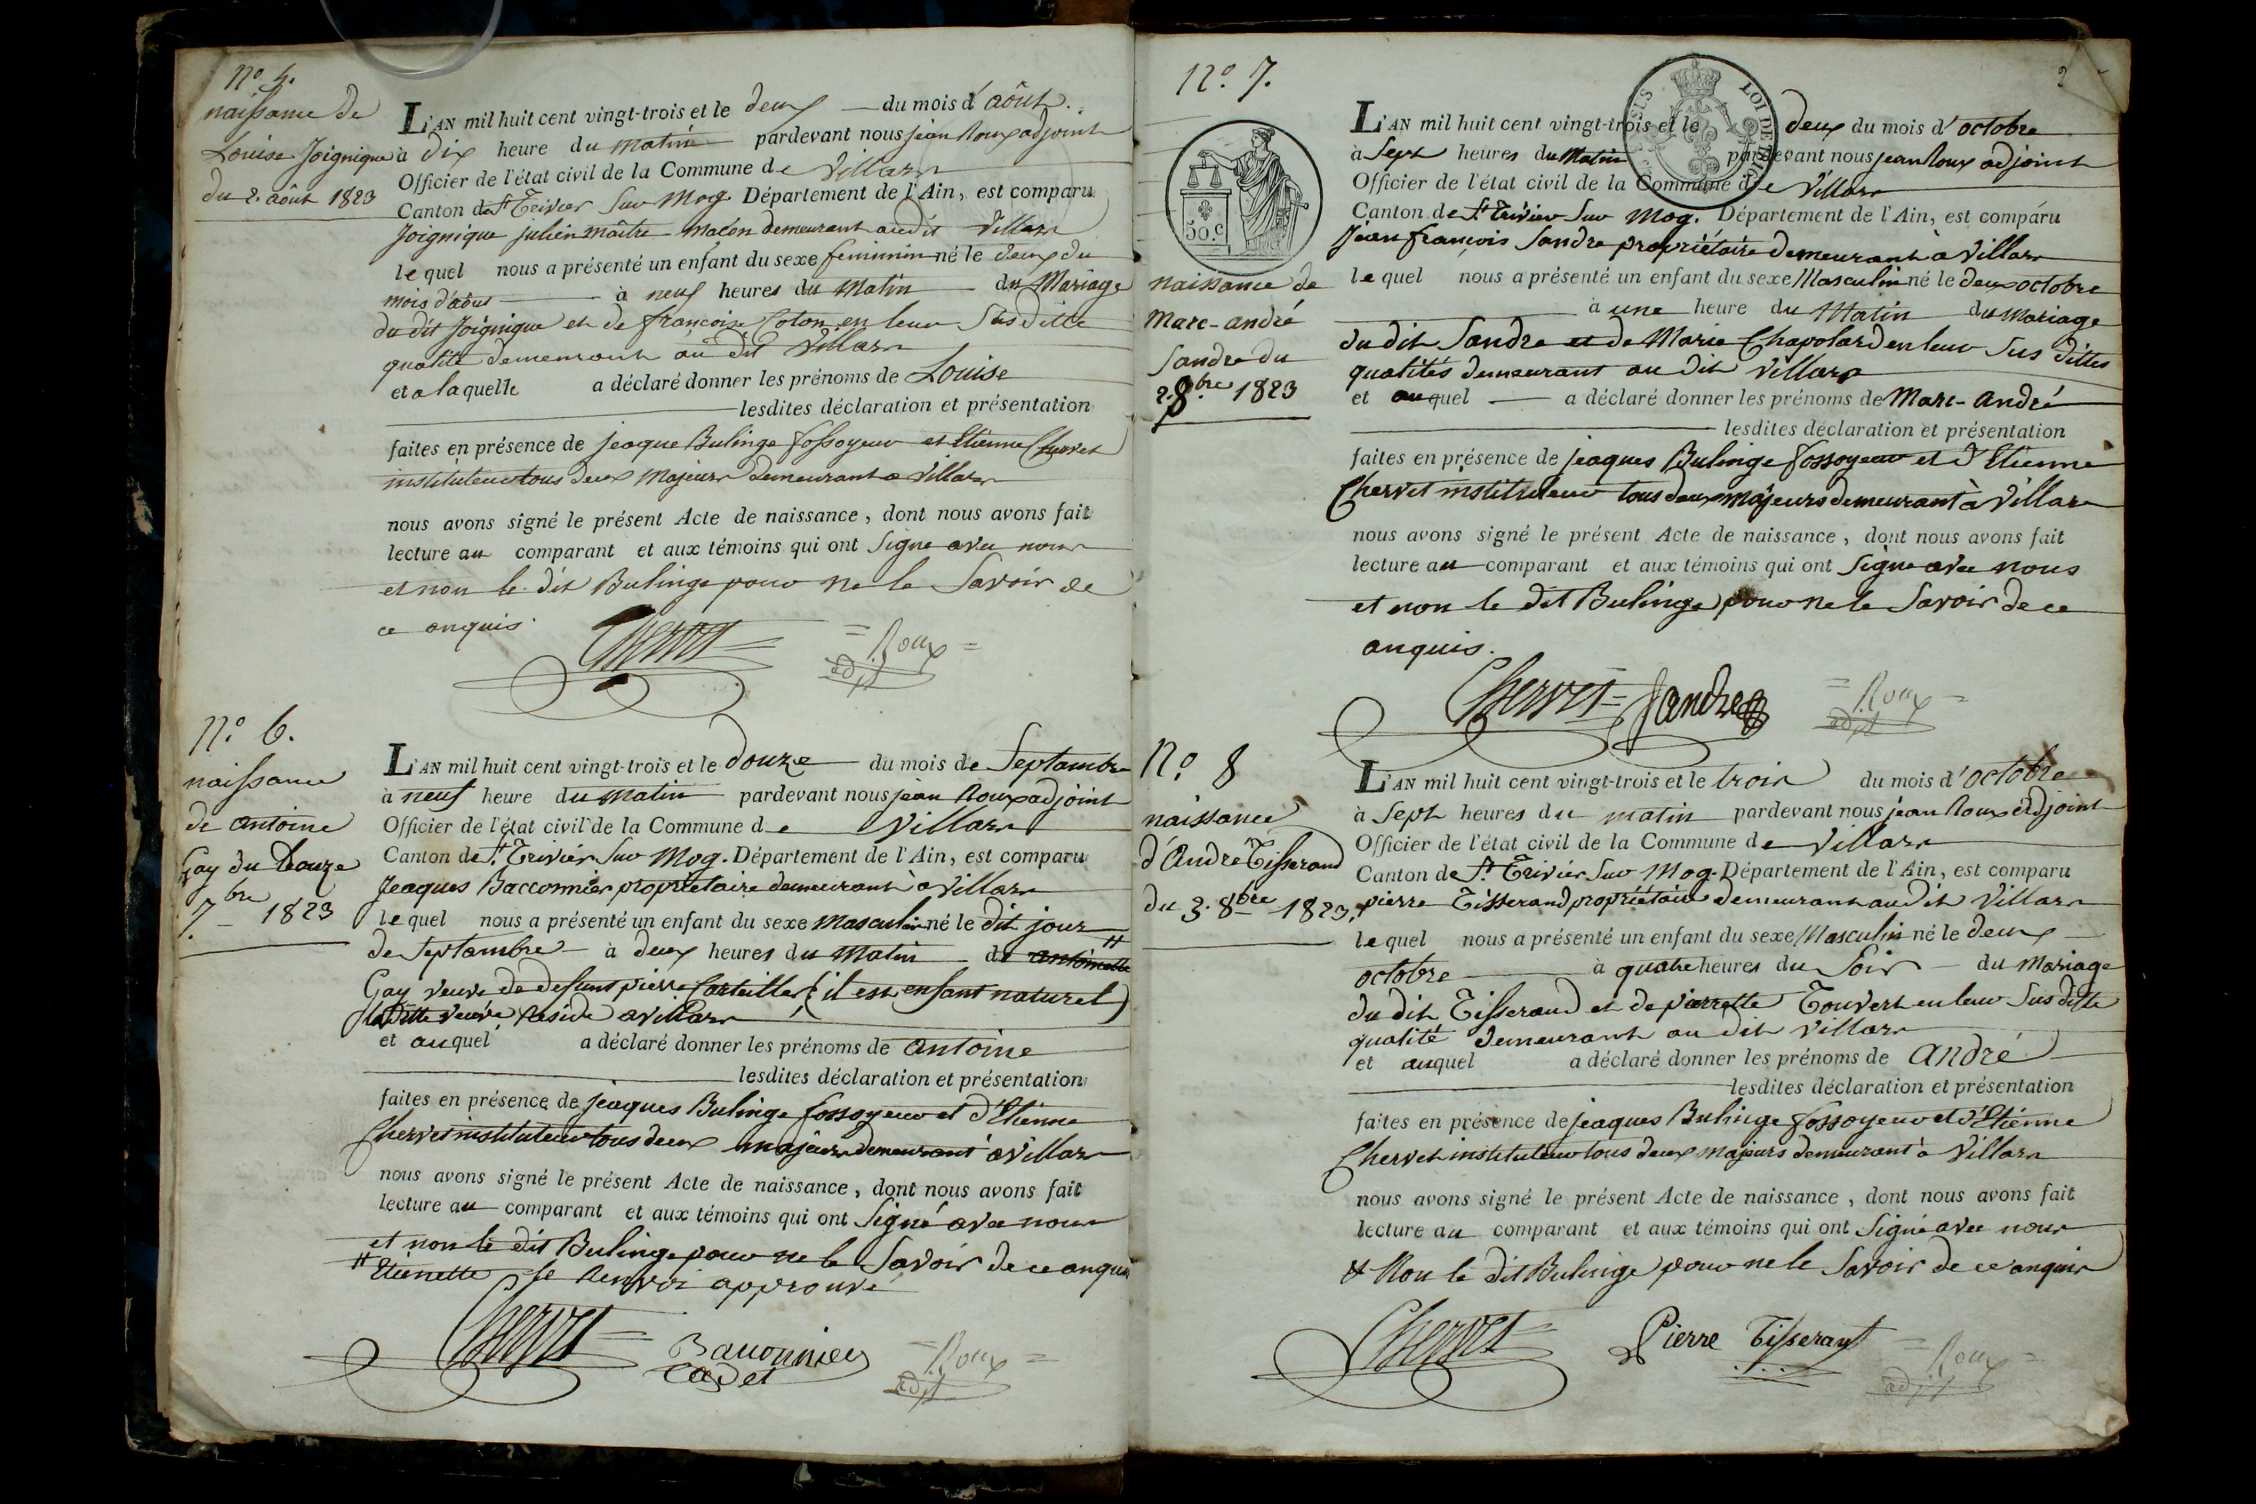 N.o 5.
naissance de
Louise Joignique
du 2. août 1823
L'AN mil huit cent vingt-trois et le deux du mois d'août.
à dix heure du matin pardevant nous jean Roux adjoint
Officier de l'état civil de la Commune de Villars
Canton de St Trivier Sur Mog. Département de l'Ain, est comparu
Joignique julien maître macon demeurant audit Villars
lequel nous a présenté un enfant du sexe feminin né le deux du
mois d'août à neuf heures du matin du Mariage
du dit Joignique et de françoise Coton en leur Sus ditte
qualité demeurant au dit Villars
et a laquelle a déclaré donner les prénoms de Louise
lesdites déclaration et présentation
faites en présence de jeaque Bulinge fossoyeur et Etienne Chervet
instituteur tous deux majeurs demeurant a Villars
nous avons signé le présent Acte de naissance, dont nous avons fait
lecture au comparant et aux témoins qui ont Signe avec nous
et non le dit Bulinge pour ne le Savoir de
ce enquis.
Chervet = Roux =
adjt
N.o 6.
naissance
de antoine
Gay du Douze
7bre 1823
L'AN mil huit cent vingt-trois et le douze du mois de Septambre
à neuf heure du matin pardevant nous jean Roux adjoint
Officier de l'état civil de la Commune de Villars
Canton de St Trivier Sur Mog. Département de l'Ain, est comparu
Jeaques Bacconnier propriétaire demeurant à Villars
lequel nous a présenté un enfant du sexe masculin né le dit jour
de Septambre à deux heures du Matin de antoinette #
Gay veuve de defunt pierre Corteille (il est enfant naturel)
la ditte veuve Reside a Villars
et auquel a déclaré donner les prénoms de antoine
lesdites déclaration et présentation
faites en présence de jeaques Bulinge fossoyeur et d'Etienne
Chervet instituteur tous deux majeurs demeurant à Villars
nous avons signé le présent Acte de naissance, dont nous avons fait
lecture au comparant et aux témoins qui ont Signé avec nous
et non le dit Bulinge pour ne le Savoir de ce enquis
# Etienette le Renvoi approuvé
Chervet Baconnier = Roux =
Cadet adjt
N.o 7.
naissance de
Marc-andré
Sandre du
2. 8.bre 1823
50.c
LOI DE
L'AN mil huit cent vingt-trois et le deux du mois d'octobre
à Sept heures du Matin pardevant nous jean Roux adjoint
Officier de l'état civil de la Commune de Villars
Canton de St Trivier Sur Mog. Département de l'Ain, est comparu
Jean françois Sandre propriétaire demeurant à Villars
lequel nous a présenté un enfant du sexe Masculin né le deux octobre
à une heure du Matin du mariage
du dit Sandre et de Marie Chapolard en leur Sus dittes
qualités demeurant au dit Villars
et auquel a déclaré donner les prénoms de Marc-André
lesdites déclaration et présentation
faites en présence de jeaques Bulinge fossoyeur et d'Etienne
Chervet instituteur tous deux majeurs demeurant à Villars
nous avons signé le présent Acte de naissance, dont nous avons fait
lecture au comparant et aux témoins qui ont Signe avec nous
et non le dit Bulinge pour ne le Savoir de ce
enquis.
Chervet = Sandre = Roux =
adjt
N.o 8
naissance
d'André Tisserand
du 3. 8bre 1823.
L'AN mil huit cent vingt-trois et le trois du mois d'octobre
à Sept heures du matin pardevant nous jean Roux adjoint
Officier de l'état civil de la Commune de Villars
Canton de St Trivier Sur Mog. Département de l'Ain, est comparu
pierre Tisserand propriétaire demeurant au dit Villars
lequel nous a présenté un enfant du sexe Masculin né le deux
octobre à quatre heures du Soir du mariage
du dit Tisserand et de pierrette Touvert en leur Sus ditte
qualité demeurant au dit Villars
et auquel a déclaré donner les prénoms de André
lesdites déclaration et présentation
faites en présence de jeaques Bulinge fossoyeur et d'Etienne
Chervet instituteur tous deux majeurs demeurant à Villars
nous avons signé le présent Acte de naissance, dont nous avons fait
lecture au comparant et aux témoins qui ont Signé avec nous
et Non le dit Bulinge pour ne le Savoir de ce enquis
Chervet Pierre Tisserant = Roux =
adjt